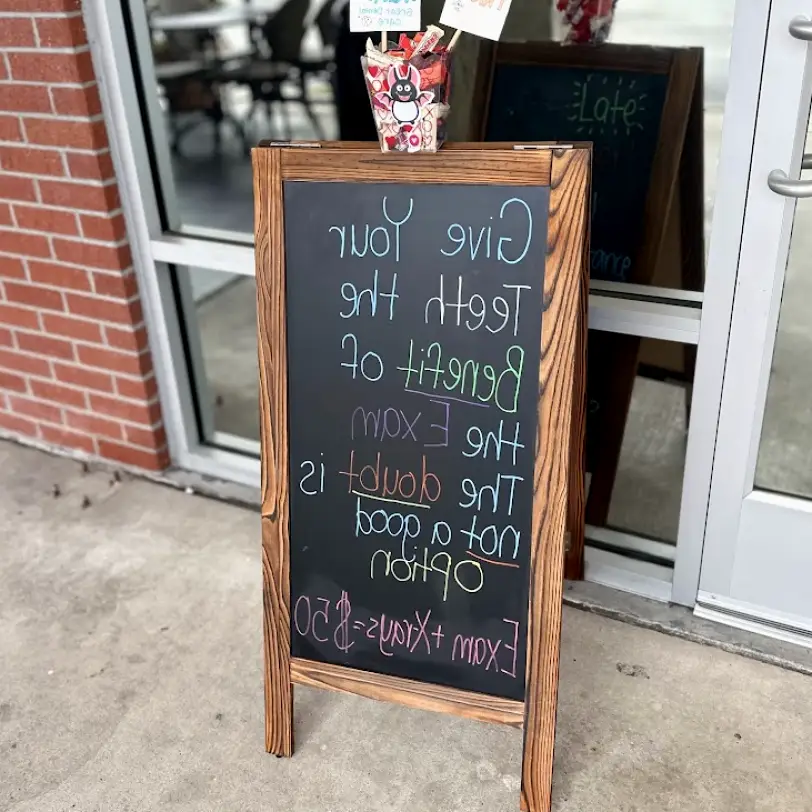 Give Your
Teeth the
Benefit of
the Exam
The doubt is
not a good
option
Exam + X-rays = $50
Late